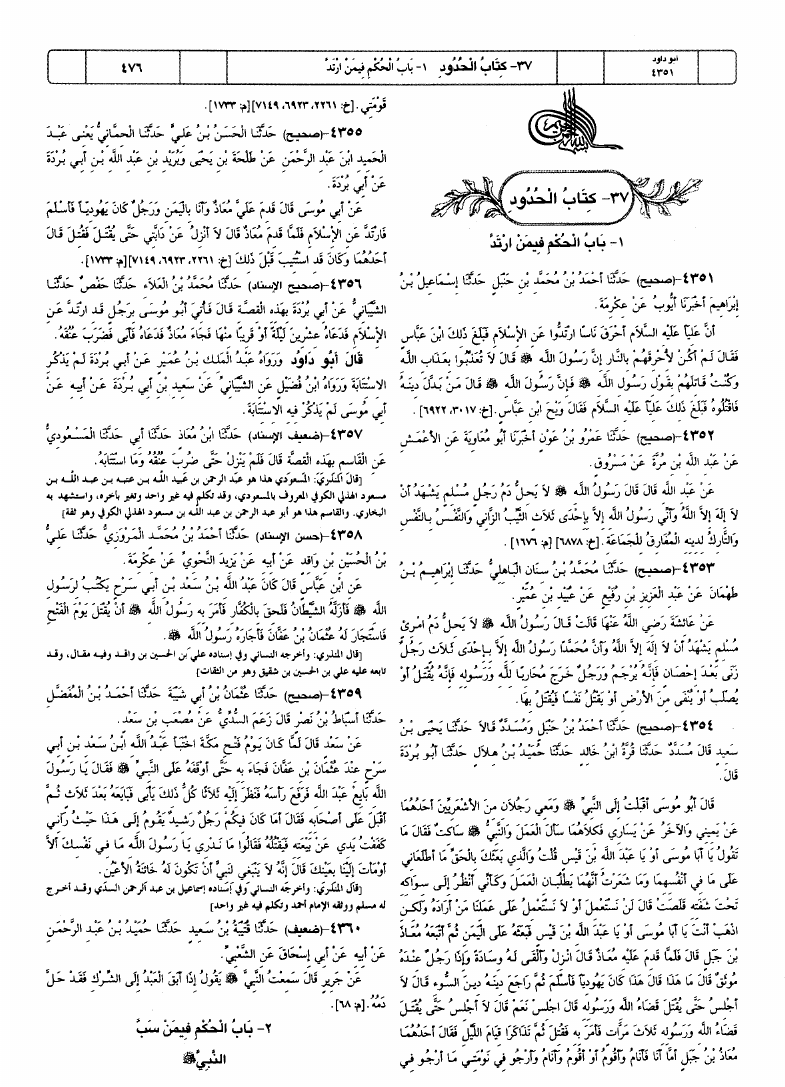 أبو داود
٤٣٥١
٣٧- كِتَابُ الْحُدُودِ ١- بَابُ الْحُكْمِ فِيمَنْ ارْتَدَّ
٤٧٦
٣٧- كِتَابُ الْحُدُودِ
١- بَابُ الْحُكْمِ فِيمَنْ ارْتَدَّ
٤٣٥١-(صحيح) حَدَّثَنَا أَحْمَدُ بْنُ مُحَمَّدِ بْنِ حَنْبَلٍ حَدَّثَنَا إِسْمَاعِيلُ بْنُ
إِبْرَاهِيمَ أَخْبَرَنَا أَيُّوبُ عَنْ عِكْرِمَةَ.
أَنَّ عَلِيّاً عَلَيْهِ السَّلَام أَحْرَقَ نَاساً ارْتَدُّوا عَنِ الإِسْلَامِ فَبَلَغَ ذَلِكَ ابْنَ عَبَّاسٍ
فَقَالَ لَمْ أَكُنْ لأُحْرِقَهُمْ بِالنَّارِ إِنَّ رَسُولَ اللَّهِ ﷺ قَالَ لَا تُعَذِّبُوا بِعَذَابِ اللَّهِ
وَكُنْتُ قَاتِلَهُمْ بِقَوْلِ رَسُولِ اللَّهِ ﷺ فَإِنَّ رَسُولَ اللَّهِ ﷺ قَالَ مَنْ بَدَّلَ دِينَهُ
فَاقْتُلُوهُ فَبَلَغَ ذَلِكَ عَلِيّاً عَلَيْهِ السَّلَام فَقَالَ وَيْحَ ابْنِ عَبَّاسٍ. [خ: ٣٠١٧، ٦٩٢٢].
٤٣٥٢-(صحيح) حَدَّثَنَا عَمْرُو بْنُ عَوْنٍ أَخْبَرَنَا أَبُو مُعَاوِيَةَ عَنِ الأَعْمَشِ
عَنْ عَبْدِ اللَّهِ بْنِ مُرَّةَ عَنْ مَسْرُوقٍ.
عَنْ عَبْدِ اللَّهِ قَالَ قَالَ رَسُولُ اللَّهِ ﷺ لَا يَحِلُّ دَمُ رَجُلٍ مُسْلِمٍ يَشْهَدُ أَنْ
لَا إِلَهَ إِلَّا اللَّهُ وَأَنِّي رَسُولُ اللَّهِ إِلَّا بِإِحْدَى ثَلَاثٍ الثَّيِّبُ الزَّانِي وَالنَّفْسُ بِالنَّفْسِ
وَالتَّارِكُ لِدِينِهِ الْمُفَارِقُ لِلْجَمَاعَةِ. [خ: ٦٨٧٨] [م: ١٦٧٦].
٤٣٥٣-(صحيح) حَدَّثَنَا مُحَمَّدُ بْنُ سِنَانٍ الْبَاهِلِيُّ حَدَّثَنَا إِبْرَاهِيمُ بْنُ
طَهْمَانَ عَنْ عَبْدِ الْعَزِيزِ بْنِ رُفَيْعٍ عَنْ عُبَيْدِ بْنِ عُمَيْرٍ.
عَنْ عَائِشَةَ رَضِيَ اللَّهُ عَنْهَا قَالَتْ قَالَ رَسُولُ اللَّهِ ﷺ لَا يَحِلُّ دَمُ امْرِئٍ
مُسْلِمٍ يَشْهَدُ أَنْ لَا إِلَهَ إِلَّا اللَّهُ وَأَنَّ مُحَمَّدًا رَسُولُ اللَّهِ إِلَّا بِإِحْدَى ثَلَاثٍ رَجُلٌ
زَنَى بَعْدَ إِحْصَانٍ فَإِنَّهُ يُرْجَمُ وَرَجُلٌ خَرَجَ مُحَارِبًا لِلَّهِ وَرَسُولِهِ فَإِنَّهُ يُقْتَلُ أَوْ
يُصْلَبُ أَوْ يُنْفَى مِنَ الأَرْضِ أَوْ يَقْتُلُ نَفْسًا فَيُقْتَلُ بِهَا.
٤٣٥٤ -(صحيح) حَدَّثَنَا أَحْمَدُ بْنُ حَنْبَلٍ وَمُسَدَّدٌ قَالَا حَدَّثَنَا يَحْيَى بْنُ
سَعِيدٍ قَالَ مُسَدَّدٌ حَدَّثَنَا قُرَّةُ ابْنُ خَالِدٍ حَدَّثَنَا حُمَيْدُ بْنُ هِلَالٍ حَدَّثَنَا أَبُو بُرْدَةَ
قَالَ.
قَالَ أَبُو مُوسَى أَقْبَلْتُ إِلَى النَّبِيِّ ﷺ وَمَعِي رَجُلَانِ مِنَ الأَشْعَرِيِّينَ أَحَدُهُمَا
عَنْ يَمِينِي وَالآخَرُ عَنْ يَسَارِي فَكِلَاهُمَا سَأَلَ الْعَمَلَ وَالنَّبِيُّ ﷺ سَاكِتٌ فَقَالَ مَا
تَقُولُ يَا أَبَا مُوسَى أَوْ يَا عَبْدَ اللَّهِ بْنَ قَيْسٍ قُلْتُ وَالَّذِي بَعَثَكَ بِالْحَقِّ مَا أَطْلَعَانِي
عَلَى مَا فِي أَنْفُسِهِمَا وَمَا شَعَرْتُ أَنَّهُمَا يَطْلُبَانِ الْعَمَلَ وَكَأَنِّي أَنْظُرُ إِلَى سِوَاكِهِ
تَحْتَ شَفَتِهِ قَلَصَتْ قَالَ لَنْ نَسْتَعْمِلَ أَوْ لَا نَسْتَعْمِلُ عَلَى عَمَلِنَا مَنْ أَرَادَهُ وَلَكِنِ
اذْهَبْ أَنْتَ يَا أَبَا مُوسَى أَوْ يَا عَبْدَ اللَّهِ بْنَ قَيْسٍ فَبَعَثَهُ عَلَى الْيَمَنِ ثُمَّ أَتْبَعَهُ مُعَاذُ
بْنُ جَبَلٍ قَالَ فَلَمَّا قَدِمَ عَلَيْهِ مُعَاذٌ قَالَ انْزِلْ وَأَلْقَى لَهُ وِسَادَةً وَإِذَا رَجُلٌ عِنْدَهُ
مُوثَقٌ قَالَ مَا هَذَا قَالَ هَذَا كَانَ يَهُودِيّاً فَأَسْلَمَ ثُمَّ رَاجَعَ دِينَهُ دِينَ السُّوءِ قَالَ لَا
أَجْلِسُ حَتَّى يُقْتَلَ قَضَاءُ اللَّهِ وَرَسُولِهِ قَالَ اجْلِسْ نَعَمْ قَالَ لَا أَجْلِسُ حَتَّى يُقْتَلَ
قَضَاءُ اللَّهِ وَرَسُولِهِ ثَلَاثَ مَرَّاتٍ فَأَمَرَ بِهِ فَقُتِلَ ثُمَّ تَذَاكَرَا قِيَامَ اللَّيْلِ فَقَالَ أَحَدُهُمَا
مُعَاذُ بْنُ جَبَلٍ أَمَّا أَنَا فَأَنَامُ وَأَقُومُ أَوْ أَقُومُ وَأَنَامُ وَأَرْجُو فِي نَوْمَتِي مَا أَرْجُو فِي
قَوْمَتِي. [خ: ٢٢٦١، ٦٩٢٣، ٧١٤٩] [م: ١٧٣٣].
٤٣٥٥-(صحيح) حَدَّثَنَا الْحَسَنُ بْنُ عَلِيٍّ حَدَّثَنَا الْحِمَّانِيُّ يَعْنِي عَبْدَ
الْحَمِيدِ ابْنَ عَبْدِ الرَّحْمَنِ عَنْ طَلْحَةَ بْنِ يَحْيَى وَبُرَيْدِ بْنِ عَبْدِ اللَّهِ بْنِ أَبِي بُرْدَةَ
عَنْ أَبِي بُرْدَةَ.
عَنْ أَبِي مُوسَى قَالَ قَدِمَ عَلَيَّ مُعَاذٌ وَأَنَا بِالْيَمَنِ وَرَجُلٌ كَانَ يَهُودِيّاً فَأَسْلَمَ
فَارْتَدَّ عَنِ الإِسْلَامِ فَلَمَّا قَدِمَ مُعَاذٌ قَالَ لَا أَنْزِلُ عَنْ دَابَّتِي حَتَّى يُقْتَلَ فَقُتِلَ قَالَ
أَحَدُهُمَا وَكَانَ قَدِ اسْتُتِيبَ قَبْلَ ذَلِكَ [خ: ٢٢٦١، ٦٩٢٣، ٧١٤٩] [م: ١٧٣٣].
٤٣٥٦-(صحيح الإسناد) حَدَّثَنَا مُحَمَّدُ بْنُ الْعَلَاءِ، حَدَّثَنَا حَفْصٌ حَدَّثَنَا
الشَّيْبَانِيُّ عَنْ أَبِي بُرْدَةَ بِهَذِهِ الْقِصَّةِ قَالَ فَأُتِيَ أَبُو مُوسَى بِرَجُلٍ قَدِ ارْتَدَّ عَنِ
الإِسْلَامِ فَدَعَاهُ عِشْرِينَ لَيْلَةً أَوْ قَرِيبًا مِنْهَا فَجَاءَ مُعَاذٌ فَدَعَاهُ فَأَبَى فَضَرَبَ عُنُقَهُ.
قَالَ أَبُو دَاوُد وَرَوَاهُ عَبْدُ الْمَلِكِ بْنُ عُمَيْرٍ عَنْ أَبِي بُرْدَةَ لَمْ يَذْكُرِ
الاسْتِتَابَةَ وَرَوَاهُ ابْنُ فُضَيْلٍ عَنِ الشَّيْبَانِيِّ عَنْ سَعِيدِ بْنِ أَبِي بُرْدَةَ عَنْ أَبِيهِ عَنْ
أَبِي مُوسَى لَمْ يَذْكُرْ فِيهِ الاسْتِتَابَةَ.
٤٣٥٧-(ضعيف الإسناد) حَدَّثَنَا ابْنُ مُعَاذٍ حَدَّثَنَا أَبِي حَدَّثَنَا الْمَسْعُودِيُّ
عَنِ الْقَاسِمِ بِهَذِهِ الْقِصَّةِ قَالَ فَلَمْ يَنْزِلْ حَتَّى ضُرِبَ عُنُقُهُ وَمَا اسْتَتَابَهُ.
[قال المنذري: المسعودي هذا هو عبد الرحمن بن عبيد الله بن عتبة بن عبد الله بن
مسعود الهذلي الكوفي المعروف بالمسعودي، وقد تكلم فيه غير واحد وتغير بأخرة، واستشهد به
البخاري. والقاسم هذا هو أبو عبد الرحمن بن عبد الله بن مسعود الهذلي الكوفي وهو ثقة]
٤٣٥٨-(حسن الإسناد) حَدَّثَنَا أَحْمَدُ بْنُ مُحَمَّدٍ الْمَرْوَزِيُّ حَدَّثَنَا عَلِيُّ
بْنُ الْحُسَيْنِ بْنِ وَاقِدٍ عَنْ أَبِيهِ عَنْ يَزِيدَ النَّحْوِيِّ عَنْ عِكْرِمَةَ.
عَنِ ابْنِ عَبَّاسٍ قَالَ كَانَ عَبْدُ اللَّهِ بْنُ سَعْدِ بْنِ أَبِي سَرْحٍ يَكْتُبُ لِرَسُولِ
اللَّهِ ﷺ فَأَزَلَّهُ الشَّيْطَانُ فَلَحِقَ بِالْكُفَّارِ فَأَمَرَ بِهِ رَسُولُ اللَّهِ ﷺ أَنْ يُقْتَلَ يَوْمَ الْفَتْحِ
فَاسْتَجَارَ لَهُ عُثْمَانُ بْنُ عَفَّانَ فَأَجَارَهُ رَسُولُ اللَّهِ ﷺ.
[قال المنذري: وأخرجه النسائي وفي إسناده علي بن الحسين بن واقد وفيه مقال، وقد
تابعه عليه علي بن الحسين بن شقيق وهو من الثقات]
٤٣٥٩-(صحيح) حَدَّثَنَا عُثْمَانُ بْنُ أَبِي شَيْبَةَ حَدَّثَنَا أَحْمَدُ بْنُ الْمُفَضَّلِ
حَدَّثَنَا أَسْبَاطُ بْنُ نَصْرٍ قَالَ زَعَمَ السُّدِّيُّ عَنْ مُصْعَبِ بْنِ سَعْدٍ.
عَنْ سَعْدٍ قَالَ لَمَّا كَانَ يَوْمُ فَتْحِ مَكَّةَ اخْتَبَأَ عَبْدُ اللَّهِ ابْنُ سَعْدِ بْنِ أَبِي
سَرْحٍ عِنْدَ عُثْمَانَ بْنِ عَفَّانَ فَجَاءَ بِهِ حَتَّى أَوْقَفَهُ عَلَى النَّبِيِّ ﷺ فَقَالَ يَا رَسُولَ
اللَّهِ بَايِعْ عَبْدَ اللَّهِ فَرَفَعَ رَأْسَهُ فَنَظَرَ إِلَيْهِ ثَلَاثًا كُلُّ ذَلِكَ يَأْبَى فَبَايَعَهُ بَعْدَ ثَلَاثٍ ثُمَّ
أَقْبَلَ عَلَى أَصْحَابِهِ فَقَالَ أَمَا كَانَ فِيكُمْ رَجُلٌ رَشِيدٌ يَقُومُ إِلَى هَذَا حَيْثُ رَآنِي
كَفَفْتُ يَدِي عَنْ بَيْعَتِهِ فَيَقْتُلُهُ فَقَالُوا مَا نَدْرِي يَا رَسُولَ اللَّهِ مَا فِي نَفْسِكَ أَلَا
أَوْمَأْتَ إِلَيْنَا بِعَيْنِكَ قَالَ إِنَّهُ لَا يَنْبَغِي لِنَبِيٍّ أَنْ تَكُونَ لَهُ خَائِنَةُ الأَعْيُنِ.
[قال المنذري: وأخرجه النسائي وفي إسناده إسماعيل بن عبد الرحمن السدي وقد أخرج
له مسلم ووثقه الإمام أحمد وتكلم فيه غير واحد]
٤٣٦٠-(ضعيف) حَدَّثَنَا قُتَيْبَةُ بْنُ سَعِيدٍ حَدَّثَنَا حُمَيْدُ بْنُ عَبْدِ الرَّحْمَنِ
عَنْ أَبِيهِ عَنْ أَبِي إِسْحَاقَ عَنِ الشَّعْبِيِّ.
عَنْ جَرِيرٍ قَالَ سَمِعْتُ النَّبِيَّ ﷺ يَقُولُ إِذَا أَبَقَ الْعَبْدُ إِلَى الشِّرْكِ فَقَدْ حَلَّ
دَمُهُ. [م: ٦٨].
٢- بَابُ الْحُكْمِ فِيمَنْ سَبَّ
النَّبِيَّ ﷺ